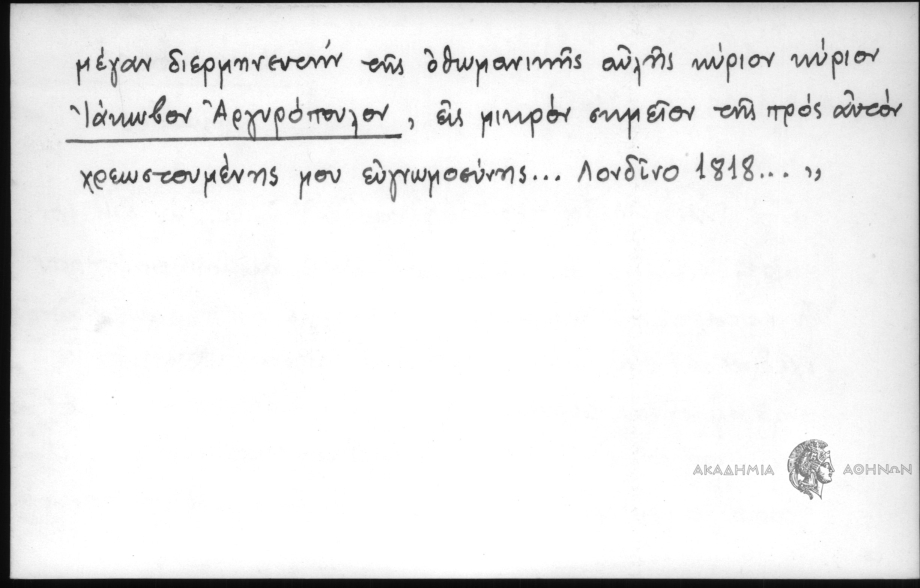 μέγαν διερμηνευτήν τῆς ὀθωμανικῆς αὐλῆς κύριον κύριον
Ἰάκωβον Ἀργυρόπουλον, εἰς μικρόν σημεῖον τῆς πρός αὐτόν
χρεωστουμένης μου εὐγνωμοσύνης... Λονδῖνο 1818... ,,
ΑΚΑΔΗΜΙΑ ΑΘΗΝΩΝ